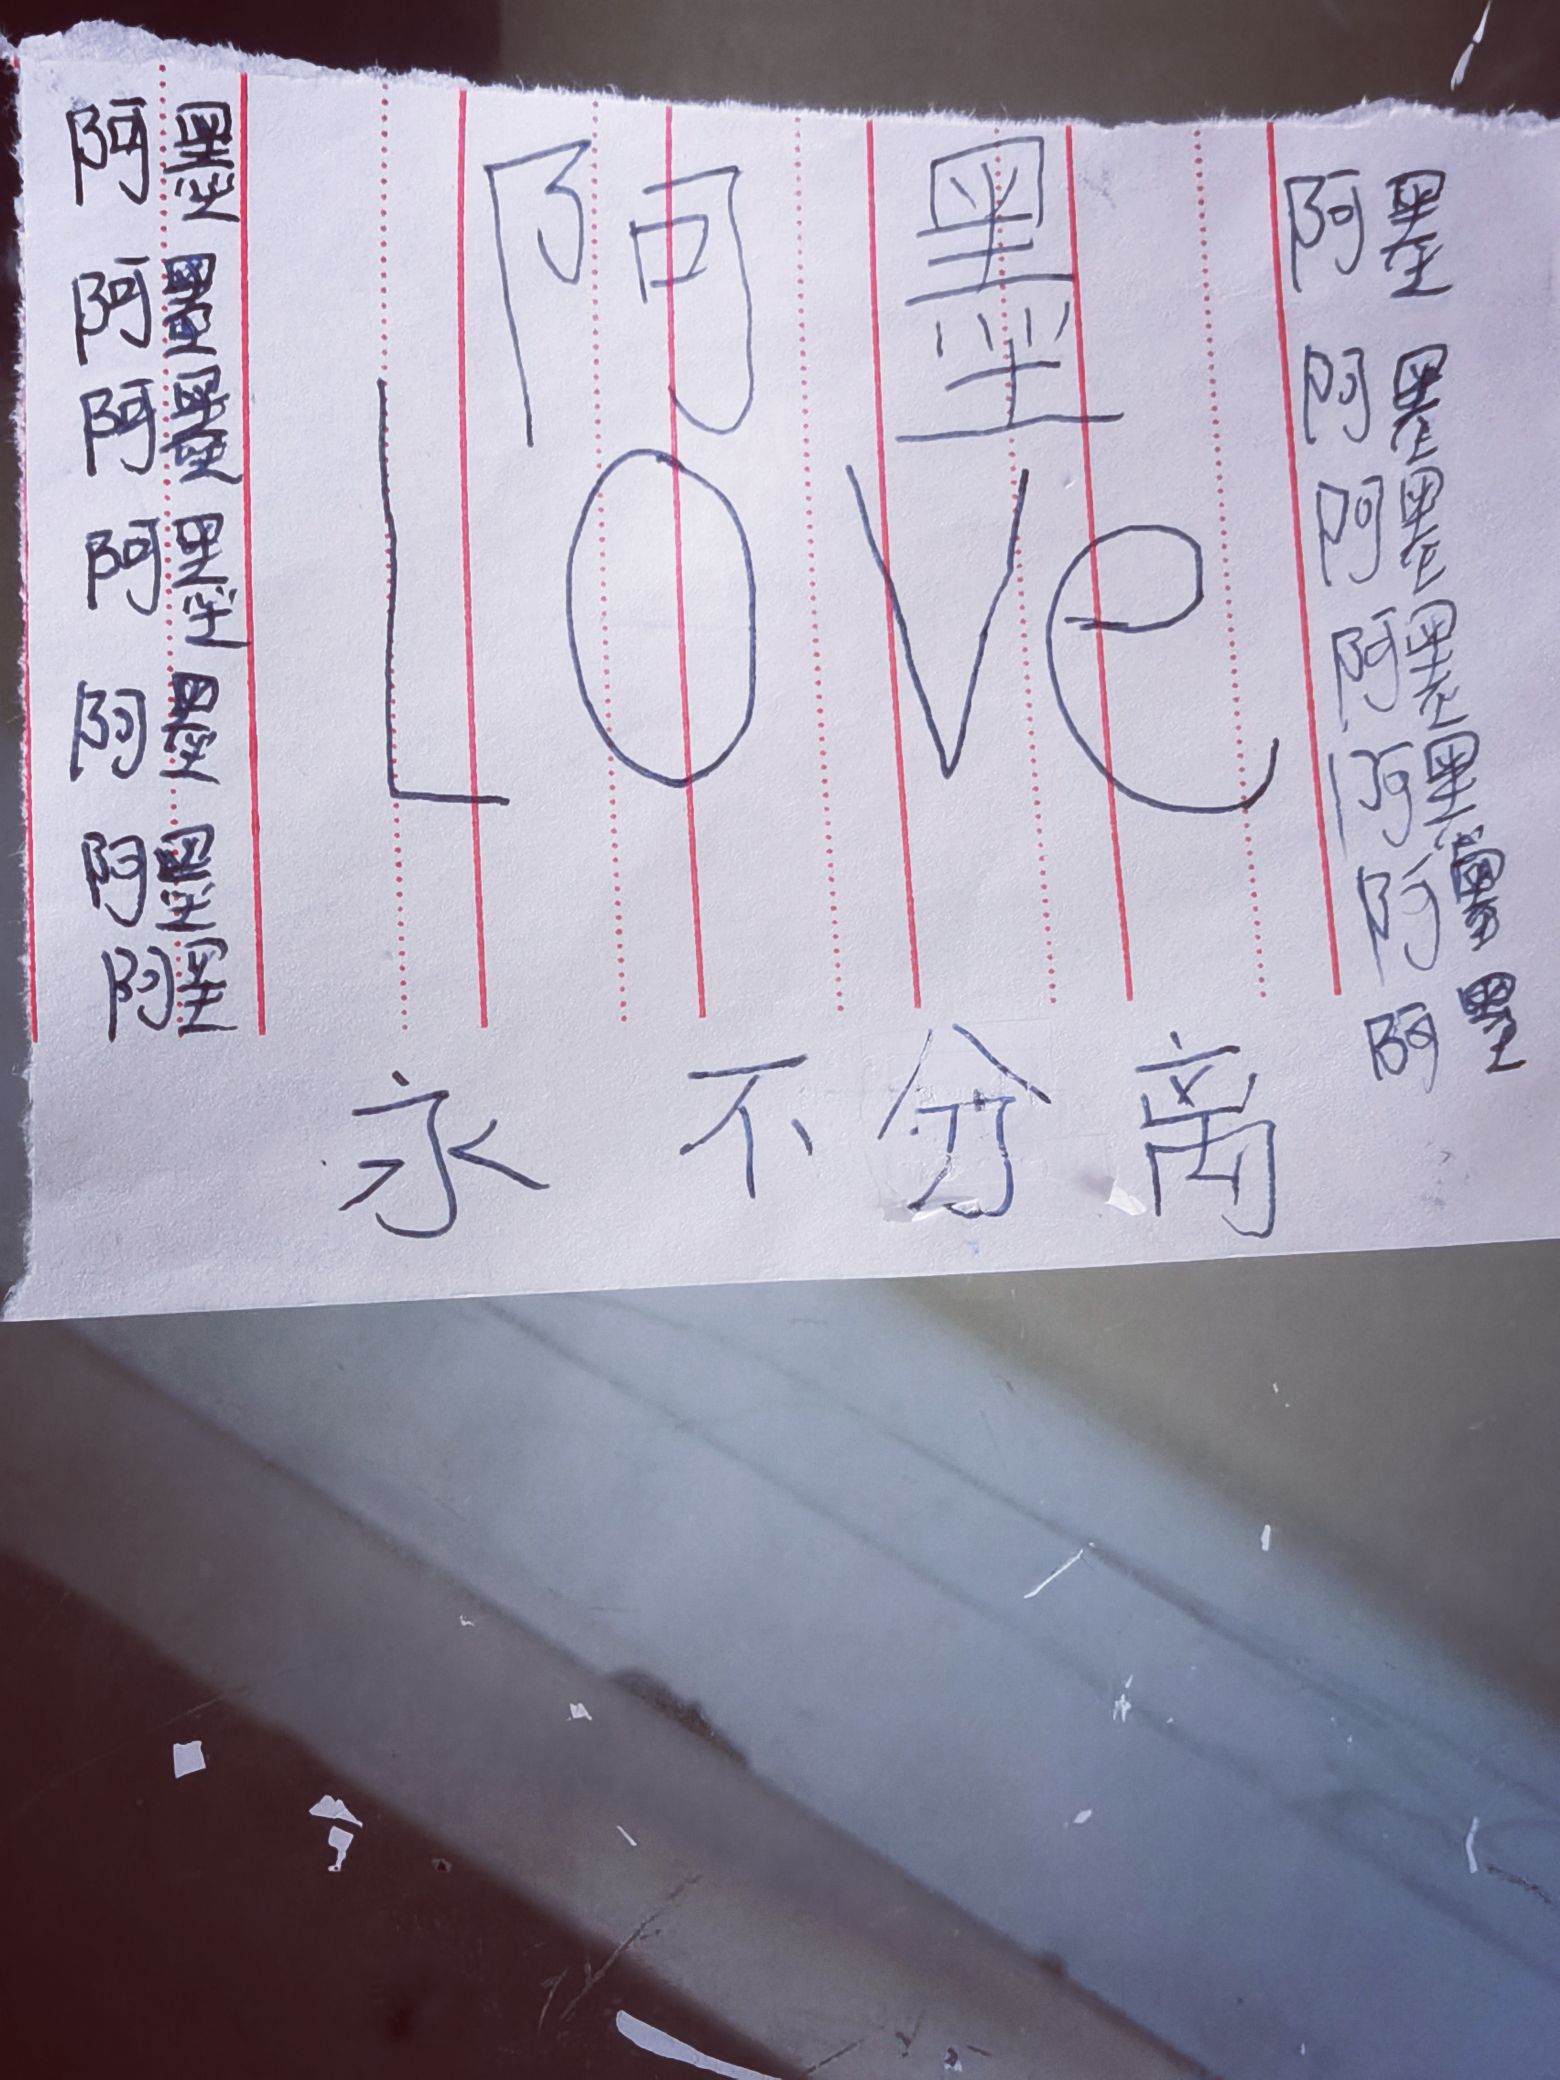 阿墨
Love
永不分离
阿墨
阿墨
阿墨
阿墨
阿墨
阿墨
阿墨
阿墨
阿墨
阿墨
阿墨
阿墨
阿墨
阿墨